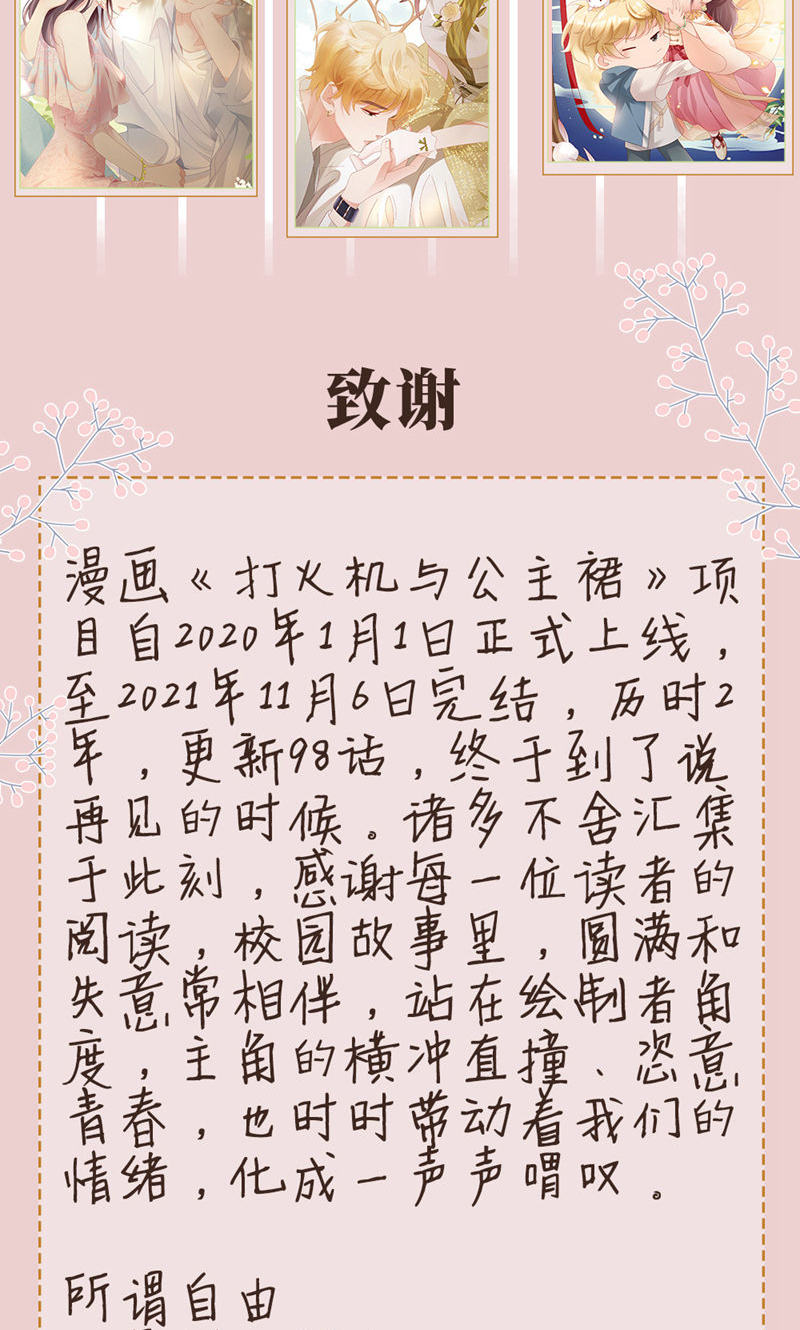 致谢
漫画《打火机与公主裙》项
目自2020年1月1日正式上线，
至2021年11月6日完结，历时2
年，更新98话，终于到了说
再见的时候。诸多不舍汇集
于此刻，感谢每一位读者的
阅读，校园故事里，圆满和
失意常相伴，站在绘制者角
度，主角的横冲直撞、恣意
青春，也时时带动着我们的
情绪，化成一声声喟叹。
所谓自由